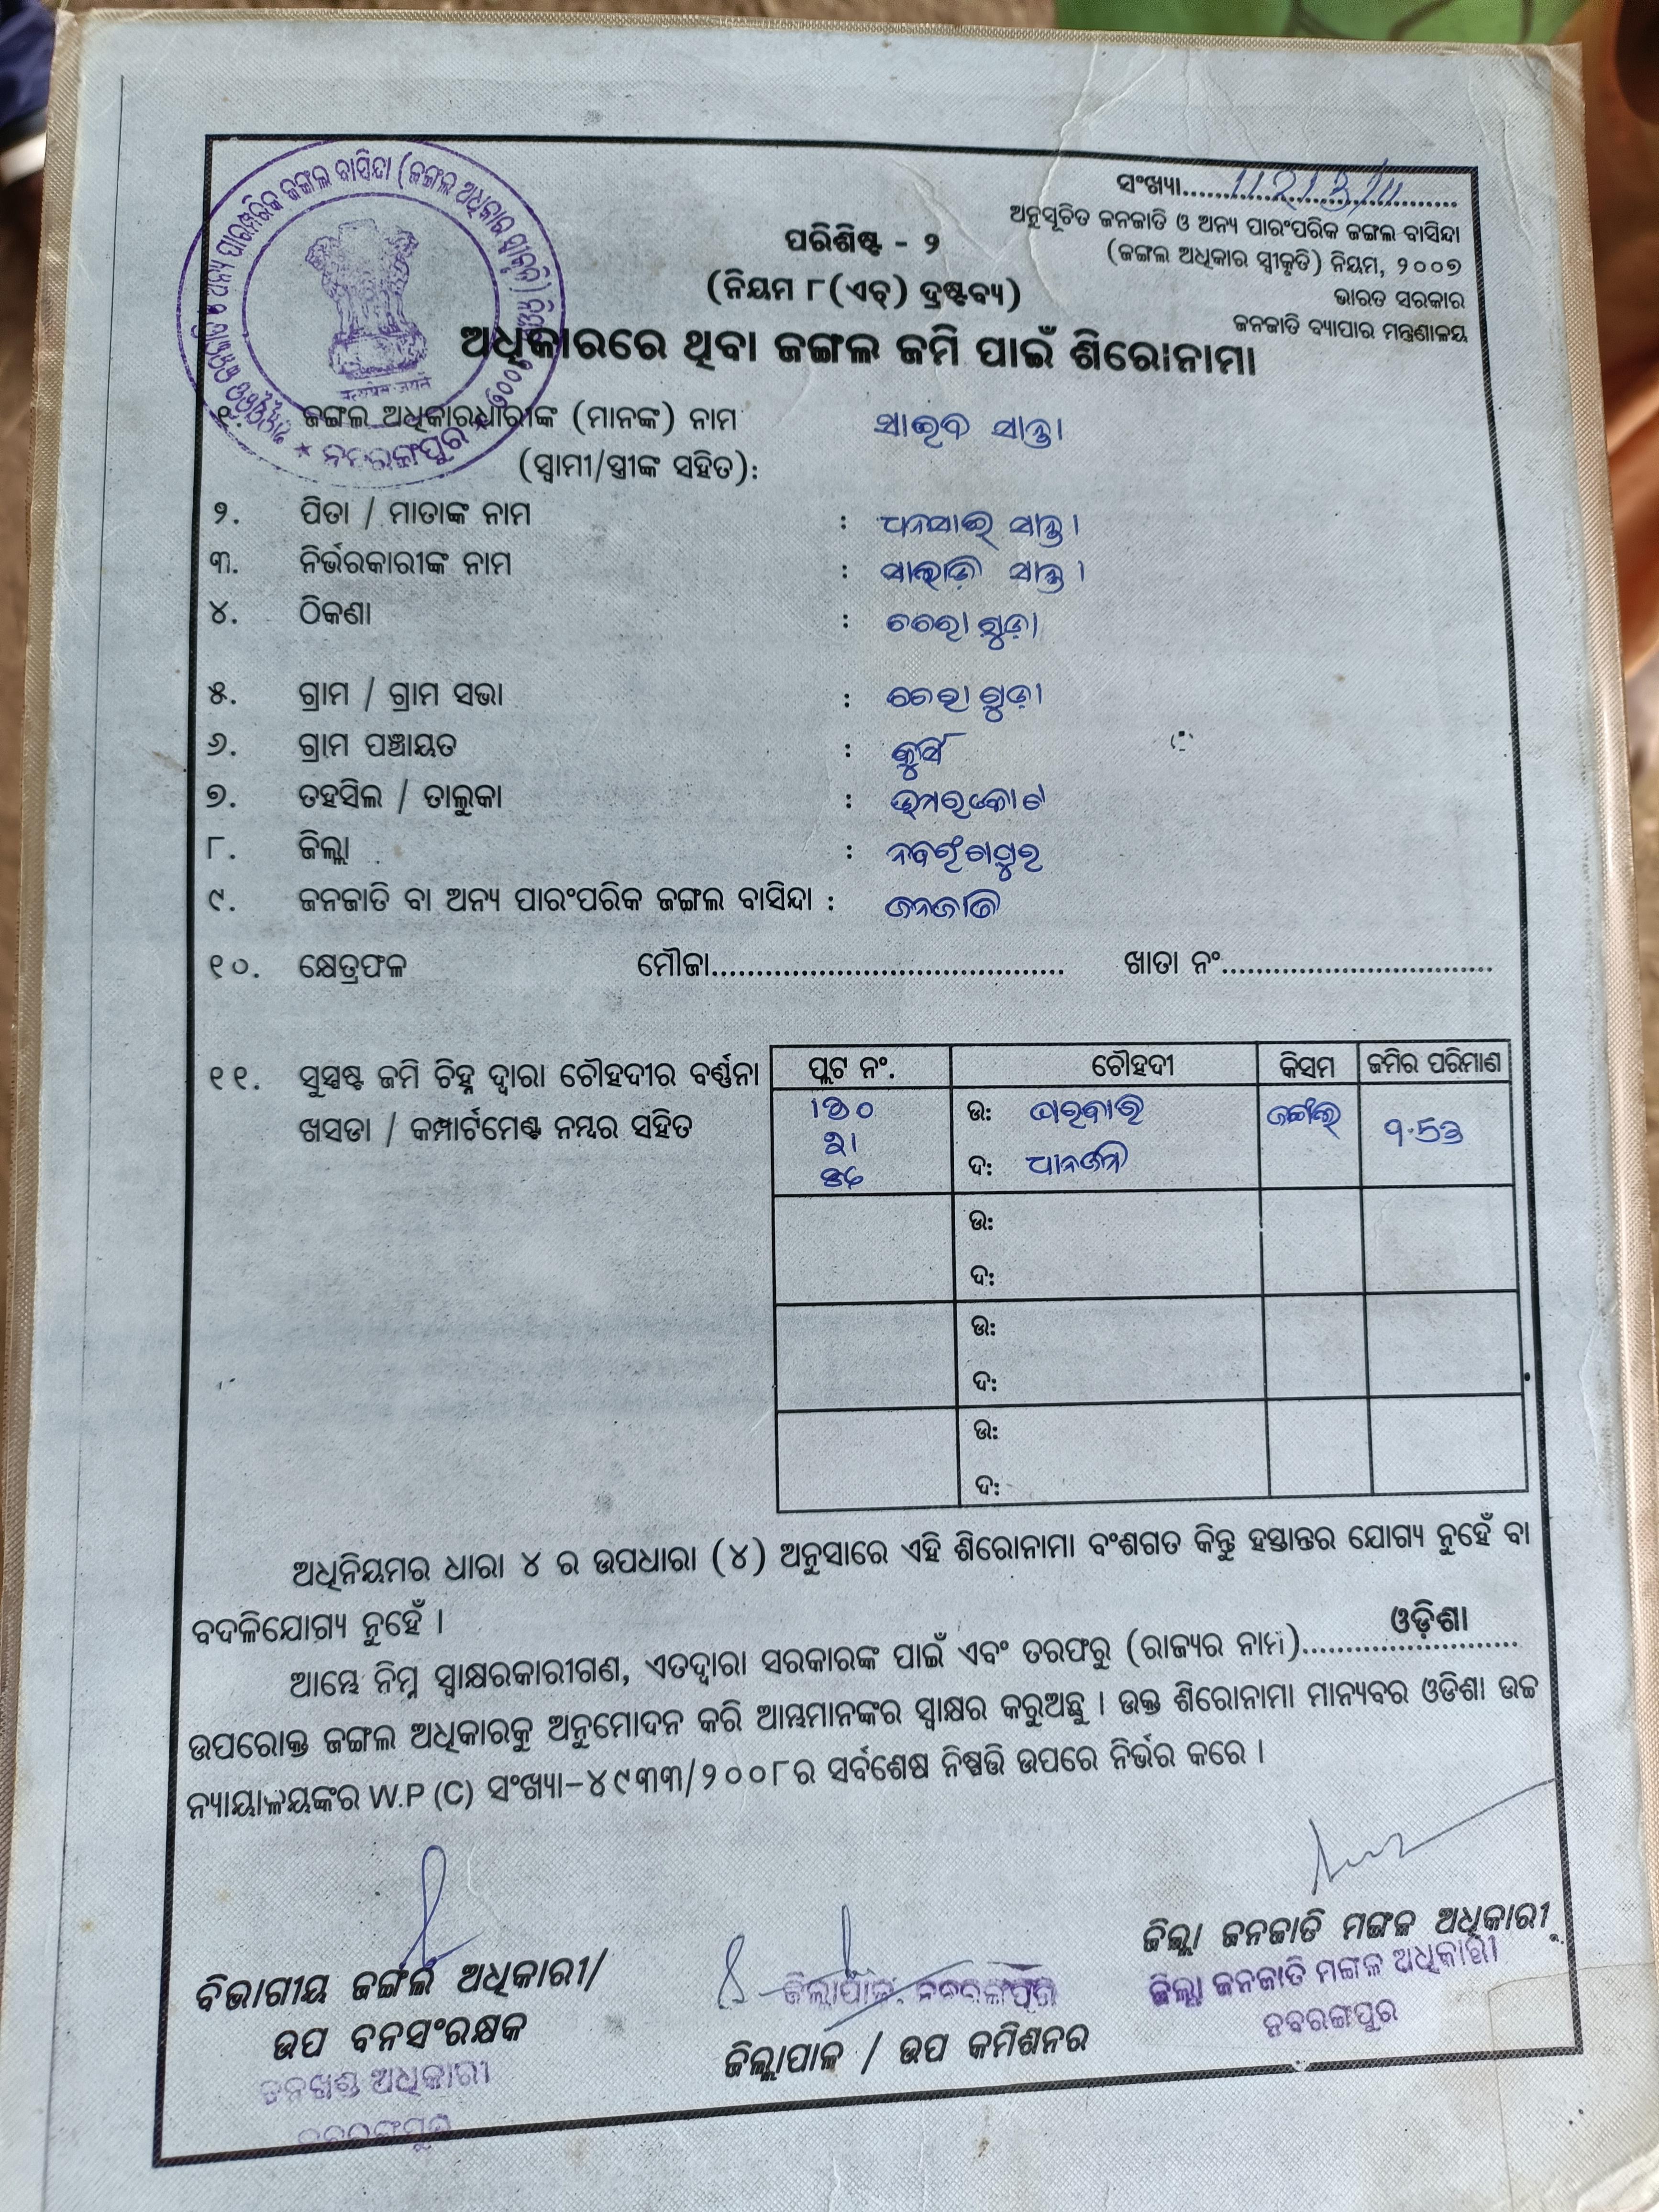 ସଂଖ୍ୟା......11213/11......
ଅନୁସୂଚିତ ଜନଜାତି ଓ ଅନ୍ୟ ପାରଂପରିକ ଜଙ୍ଗଲ ବାସିନ୍ଦା
(ଜଙ୍ଗଲ ଅଧିକାର ସ୍ୱୀକୃତି) ନିୟମ, ୨୦୦୭
ଭାରତ ସରକାର
ଜନଜାତି ବ୍ୟାପାର ମନ୍ତ୍ରଣାଳୟ
ପରିଶିଷ୍ଟ - ୨
(ନିୟମ ୮(ଏଚ୍) ଦ୍ରଷ୍ଟବ୍ୟ)
ଅଧିକାରରେ ଥିବା ଜଙ୍ଗଲ ଜମି ପାଇଁ ଶିରୋନାମା
ଅନୁସୂଚିତ ଜନଜାତି ଓ ଅନ୍ୟ ପାରମ୍ପରିକ ଜଙ୍ଗଲ ବାସିନ୍ଦା (ଜଙ୍ଗଲ ଅଧିକାର ସ୍ୱୀକୃତି)
ନବରଙ୍ଗପୁର
सत्यमेव जयते
୧. ଜଙ୍ଗଲ ଅଧିକାରଧାରୀଙ୍କ (ମାନଙ୍କ) ନାମ ସାଇବ ସାନ୍ତା
(ସ୍ୱାମୀ/ସ୍ତ୍ରୀଙ୍କ ସହିତ):
୨. ପିତା / ମାତାଙ୍କ ନାମ : ଧନସାଇ ସାନ୍ତା
୩. ନିର୍ଭରକାରୀଙ୍କ ନାମ : ସାନ୍ତା
୪. ଠିକଣା : ଚେରାଗୁଡ଼ା
୫. ଗ୍ରାମ / ଗ୍ରାମ ସଭା : ଚେରାଗୁଡ଼ା
୬. ଗ୍ରାମ ପଞ୍ଚାୟତ : କୁର୍ସି
୭. ତହସିଲ / ତାଲୁକା : ଉମରକୋଟ
୮. ଜିଲ୍ଲା : ନବରଂଗପୁର
୯. ଜନଜାତି ବା ଅନ୍ୟ ପାରଂପରିକ ଜଙ୍ଗଲ ବାସିନ୍ଦା : ଜନଜାତି
୧୦. କ୍ଷେତ୍ରଫଳ ମୌଜା...................................... ଖାତା ନଂ..............................
୧୧. ସୁସ୍ପଷ୍ଟ ଜମି ଚିହ୍ନ ଦ୍ୱାରା ଚୌହଦୀର ବର୍ଣ୍ଣନା
ଖସଡା / କମ୍ପାର୍ଟମେଣ୍ଟ ନମ୍ବର ସହିତ
ପ୍ଲଟ ନଂ. ଚୌହଦୀ କିସମ ଜମିର ପରିମାଣ
ଉ: ଜଙ୍ଗଲ
ଦ: ଧାନଜମି
ଉ:
ଦ:
ଉ:
ଦ:
ଉ:
ଦ:
ଅଧିନିୟମର ଧାରା ୪ ର ଉପଧାରା (୪) ଅନୁସାରେ ଏହି ଶିରୋନାମା ବଂଶଗତ କିନ୍ତୁ ହସ୍ତାନ୍ତର ଯୋଗ୍ୟ ନୁହେଁ ବା
ବଦଳିଯୋଗ୍ୟ ନୁହେଁ ।
ଆମ୍ଭେ ନିମ୍ନ ସ୍ୱାକ୍ଷରକାରୀଗଣ, ଏତଦ୍ୱାରା ସରକାରଙ୍କ ପାଇଁ ଏବଂ ତରଫରୁ (ରାଜ୍ୟର ନାମ)......ଓଡ଼ିଶା......
ଉପରୋକ୍ତ ଜଙ୍ଗଲ ଅଧିକାରକୁ ଅନୁମୋଦନ କରି ଆମ୍ଭମାନଙ୍କର ସ୍ୱାକ୍ଷର କରୁଅଛୁ । ଉକ୍ତ ଶିରୋନାମା ମାନ୍ୟବର ଓଡିଶା ଉଚ୍ଚ
ନ୍ୟାୟାଳୟଙ୍କର W.P (C) ସଂଖ୍ୟା-୪୯୩୩/୨୦୦୮ର ସର୍ବଶେଷ ନିଷ୍ପତ୍ତି ଉପରେ ନିର୍ଭର କରେ ।
ବିଭାଗୀୟ ଜଙ୍ଗଲ ଅଧିକାରୀ/
ଉପ ବନସଂରକ୍ଷକ
ବନଖଣ୍ଡ ଅଧିକାରୀ
ନବରଙ୍ଗପୁର
ଜିଲ୍ଲାପାଳ, ନବରଙ୍ଗପୁର
ଜିଲ୍ଲାପାଳ / ଉପ କମିଶନର
ଜିଲ୍ଲା ଜନଜାତି ମଙ୍ଗଳ ଅଧିକାରୀ
ଜିଲ୍ଲା ଜନଜାତି ମଙ୍ଗଳ ଅଧିକାରୀ
ନବରଙ୍ଗପୁର